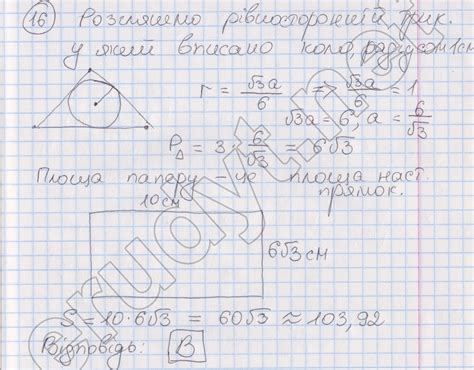 16 Розглянемо рівносторонній трик.
у який вписано коло радіусом 1см
r = √3a/6 => √3a/6 = 1
√3a = 6, a = 6/√3
P△ = 3 · 6/√3 = 6√3
Площа паперу – це площа наст.
прямок.
10см
6√3 см
S = 10·6√3 = 60√3 ≈ 103,92
Відповідь: В